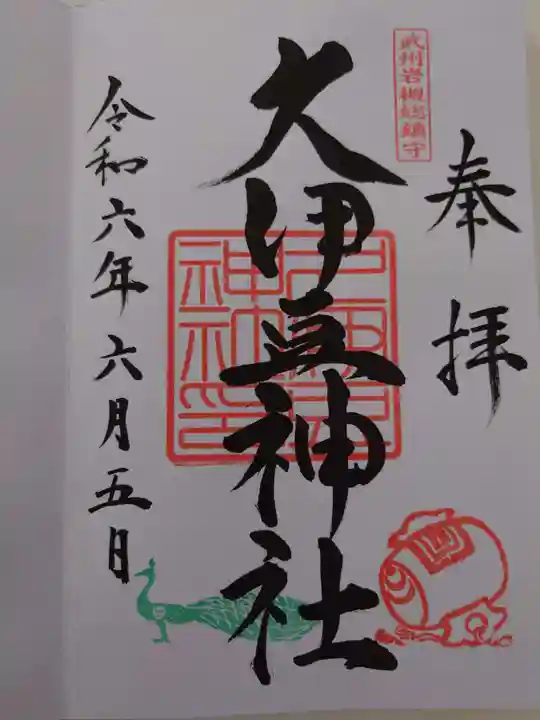 奉拝
武州岩槻総鎮守
久伊豆神社
令和六年六月五日